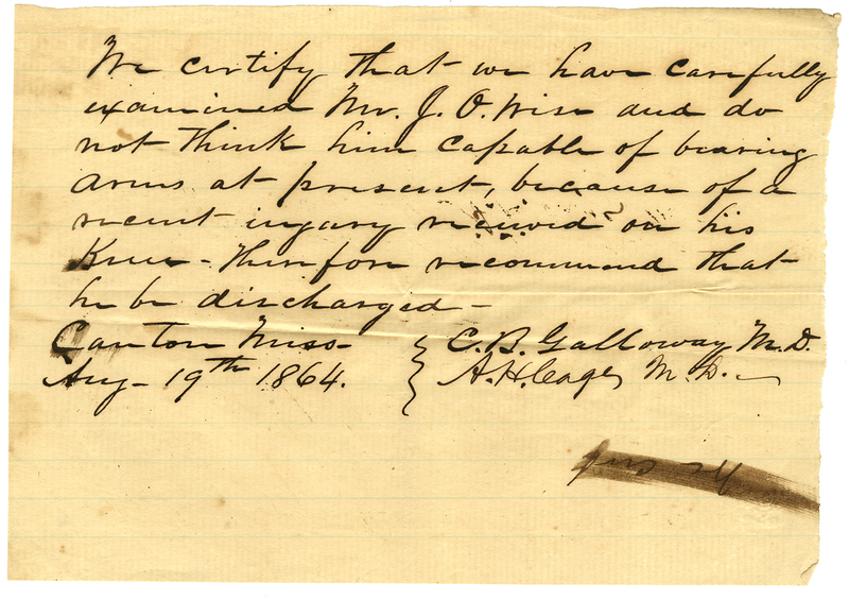 We certify that we have carefully
examined Mr. J. O. Wise and do
not think him capable of bearing
arms at present, because of a
recent injury received on his
Knee - Therefore recommend that
he be discharged -
Canton Miss-
Aug- 19th 1864.
C. B. Galloway M.D.
A. H. Cage, M. D.